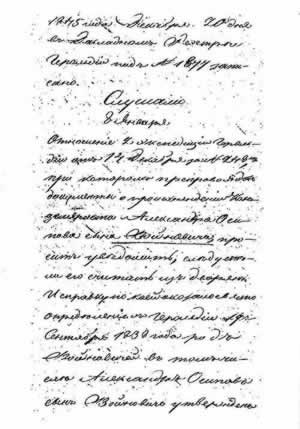 1845 года Декабря 20 дня
въ Докладномъ Реэстрѣ
Герольдіи подъ № 1877 запи-
сано.
Слушали
8 Января
Отношеніе 2 экспедиціи Гераль-
діи отъ 17 Декабря за №
при которомъ препровождая
документы о происхожденіи
Александра Оси-
пова сына Войновича про-
ситъ увѣдомить, слѣдуетъ
ли его считать изъ дворянъ.
И справку по коей оказалось что
опредѣленіемъ Герольдіи
Сентября 1839 года родъ
Войновичей въ томъ чи-
слѣ Александръ Осиповъ
сынъ Войновичъ утвержденъ